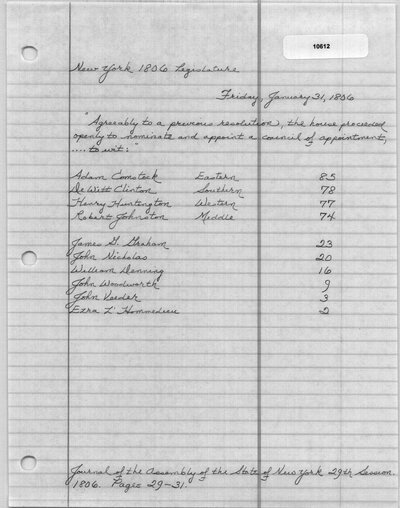 10612
New York 1806 Legislature
Friday, January 31, 1806
"Agreeably to a previous resolution, the house proceeded
openly to nominate and appoint a council of appointment,
.... to wit:"
Adam Comstock Eastern 85
De Witt Clinton Southern 78
Henry Huntington Western 77
Robert Johnston Middle 74
James G. Graham 23
John Nicholas 20
William Denning 16
John Woodworth 9
John Veeder 3
Ezra L'Hommedieu 2
Journal of the Assembly of the State of New York 29th Session.
1806. Pages 29-31.